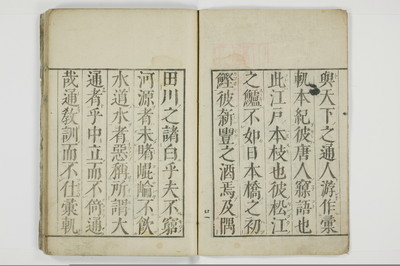 與天下之通人游作彙
軌本紀彼唐人寐語也
此江戸本枝也彼松江
之鱸不如日本橋之初
鰹彼新豐之酒焉及隅
田川之諸白乎夫不窮
河源者未睹崐崘不飲
水道水者惡稱所謂大
通者乎中立而不倚通
哉通教訓而不仕彙軌